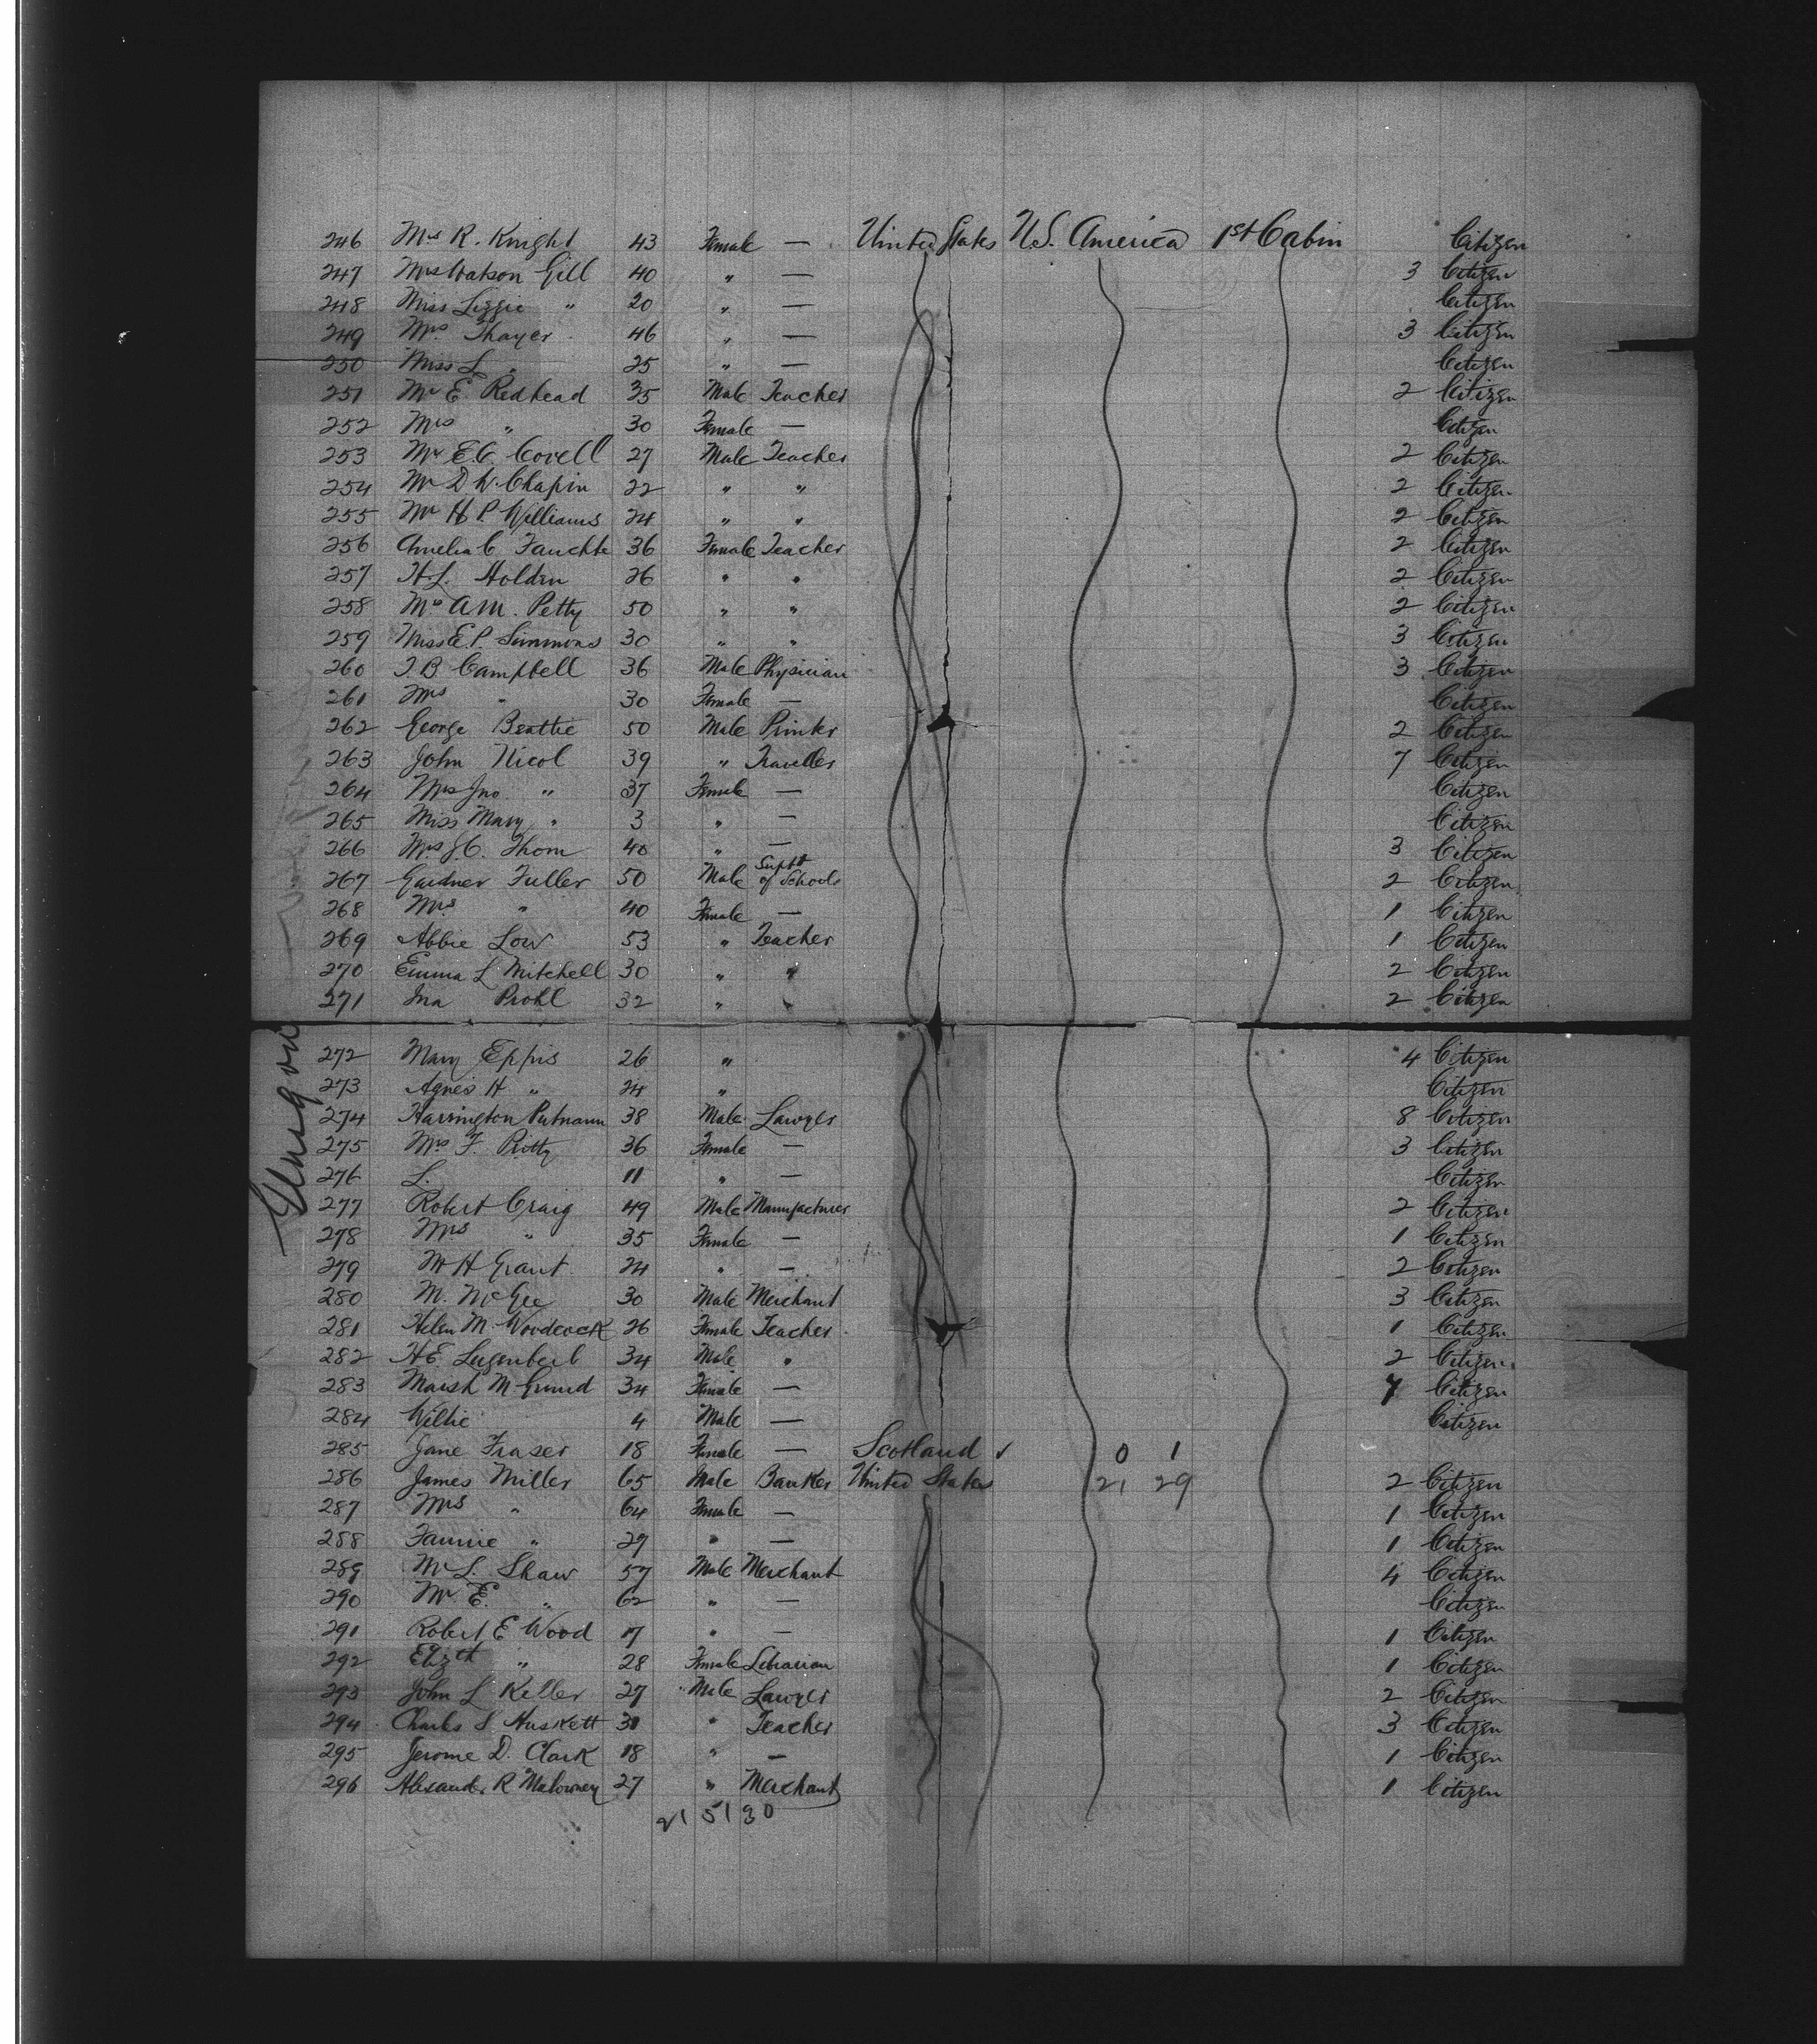 246 Mrs R. Knight 43 Female — United States U.S. America 1st Cabin Citizen
247 Mrs Watson Gill 40 " — 3 Citizen
248 Miss Lizzie " 20 " — Citizen
249 Mrs. Thayer 46 " — 3 Citizen
250 Miss L " 25 " — Citizen
251 Mr E. Redhead 35 Male Teacher 2 Citizen
252 Mrs " 30 Female — Citizen
253 Mr E.C. Covell 27 Male Teacher 2 Citizen
254 Mr D W. Chapin 22 " " 2 Citizen
255 Mr H P. Williams 24 " " 2 Citizen
256 Amelia C 36 Female Teacher 2 Citizen
257 H.L. Holden 26 " " 2 Citizen
258 Mrs A.M. Petty 50 " " 2 Citizen
259 Miss E.P. Simmons 30 " " 3 Citizen
260 J. B Campbell 36 Male Physician 3 Citizen
261 Mrs " 30 Female — Citizen
262 George Beattie 50 Male Printer 2 Citizen
263 John Nicol 39 " Traveller 7 Citizen
264 Mrs Jno. " 37 Female — Citizen
265 Miss Mary " 3 " — Citizen
266 Mrs J.C. Thom 40 " — 3 Citizen
267 Gardner Fuller 50 Male Supt of Schools 2 Citizen
268 Mrs " 40 Female — 1 Citizen
269 Abbie Low 53 " Teacher 1 Citizen
270 Emma L Mitchell 30 " " 2 Citizen
271 Ina Prohl 32 " " 2 Citizen
272 Mary Eppis 26 " 4 Citizen
273 Agnes H " 24 " Citizen
274 Harrington Putnam 38 Male Lawyer 8 Citizen
275 Mrs F. 36 Female — 3 Citizen
276 L. 11 " — Citizen
277 Robert Craig 49 Male Manufacturer 2 Citizen
278 Mrs " 35 Female — 1 Citizen
279 M H Grant 24 " — 2 Citizen
280 M. McGee 30 Male Merchant 3 Citizen
281 Helen M. Woodcock 26 Female Teacher 1 Citizen
282 H.E. 34 Male " 2 Citizen
283 34 Female — 7 Citizen
284 Willie 4 Male — Citizen
285 Jane Fraser 18 Female — Scotland ✓ 0 1
286 James Miller 65 Male Banker United States 21 29 2 Citizen
287 Mrs " 64 Female — 1 Citizen
288 Fannie " 27 " — 1 Citizen
289 Mr L. Shaw 57 Male Merchant 4 Citizen
290 Mr E. " 62 " — Citizen
291 Robert E Wood 17 " — 1 Citizen
292 Elizth " 28 Female Librarian 1 Citizen
293 John L Keller 27 Male Lawyer 2 Citizen
294 Charles S. Huskett 31 " Teacher 3 Citizen
295 Jerome D. Clark 18 " — 1 Citizen
296 R 27 " Merchant 1 Citizen
21 51 30